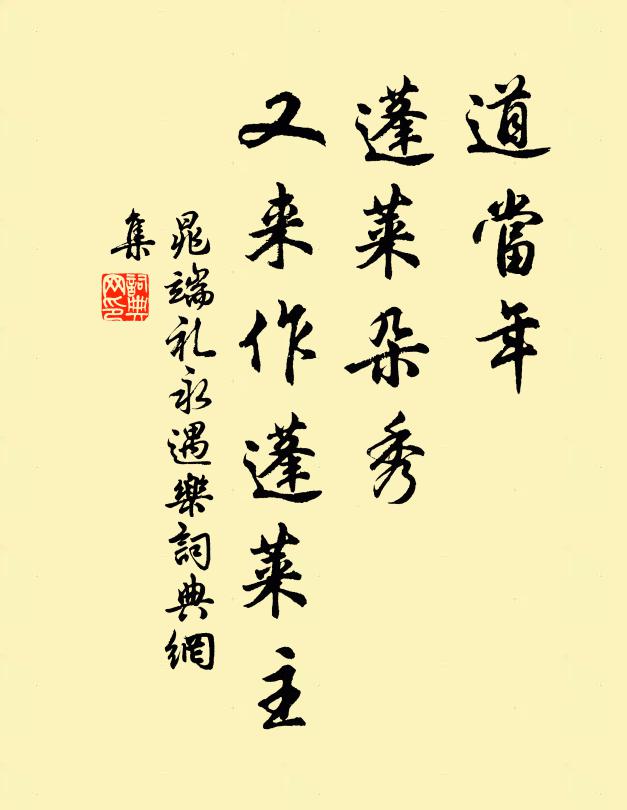 道當年
蓬莱朶秀
又来作蓬莱主
晁端礼永遇樂詞典網
集
詞典
网印